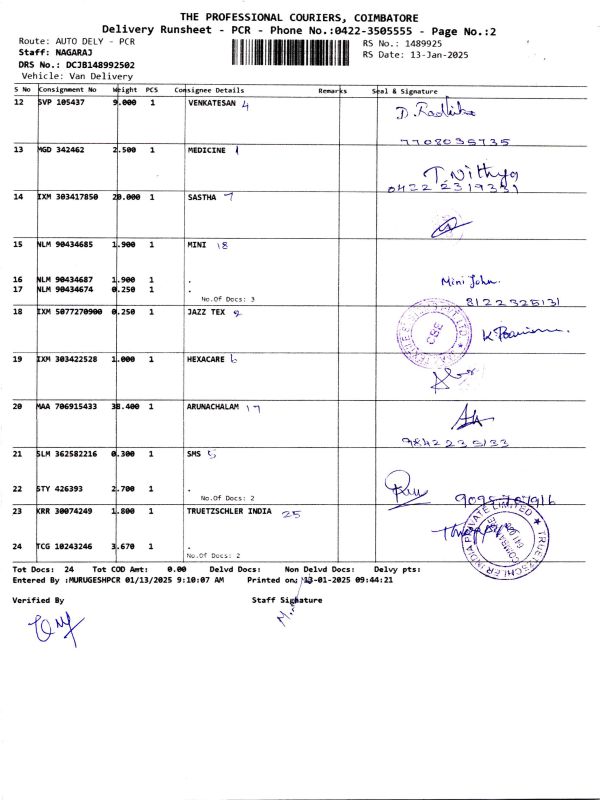 THE PROFESSIONAL COURIERS, COIMBATORE
Delivery Runsheet - PCR - Phone No.:0422-3505555 - Page No.:2
Route: AUTO DELY - PCR RS No.: 1489925
Staff: NAGARAJ RS Date: 13-Jan-2025
DRS No.: DCJB148992502
Vehicle: Van Delivery
S No Consignment No Weight PCS Consignee Details Remarks Seal & Signature
12 SVP 105437 9.000 1 VENKATESAN 4
7708035735
13 MGD 342462 2.500 1 MEDICINE 1
T. Nithya
0422 2319351
14 IXM 303417850 20.000 1 SASTHA 7
15 NLM 90434685 1.900 1 MINI 18
16 NLM 90434687 1.900 1 . Mini John.
17 NLM 90434674 0.250 1 .
No.Of Docs: 3 8122325131
18 IXM 5077270900 0.250 1 JAZZ TEX 2
19 IXM 303422528 1.000 1 HEXACARE 6
20 MAA 706915433 38.400 1 ARUNACHALAM 17
9842235133
21 SLM 362582216 0.300 1 SMS 5
22 STY 426393 2.700 1 .
No.Of Docs: 2
23 KRR 30074249 1.800 1 TRUETZSCHLER INDIA 25
TRUETZSCHLER INDIA PRIVATE LIMITED
24 TCG 10243246 3.670 1 .
No.Of Docs: 2
Tot Docs: 24 Tot COD Amt: 0.00 Delvd Docs: Non Delvd Docs: Delvy pts:
Entered By :MURUGESHPCR 01/13/2025 9:10:07 AM Printed on: 13-01-2025 09:44:21
Verified By Staff Signature